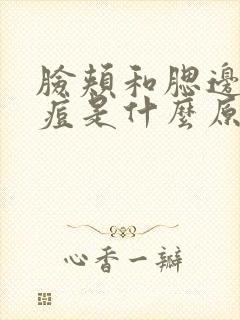 臉頰和腮邊
痘是什麼原
心香一瓣